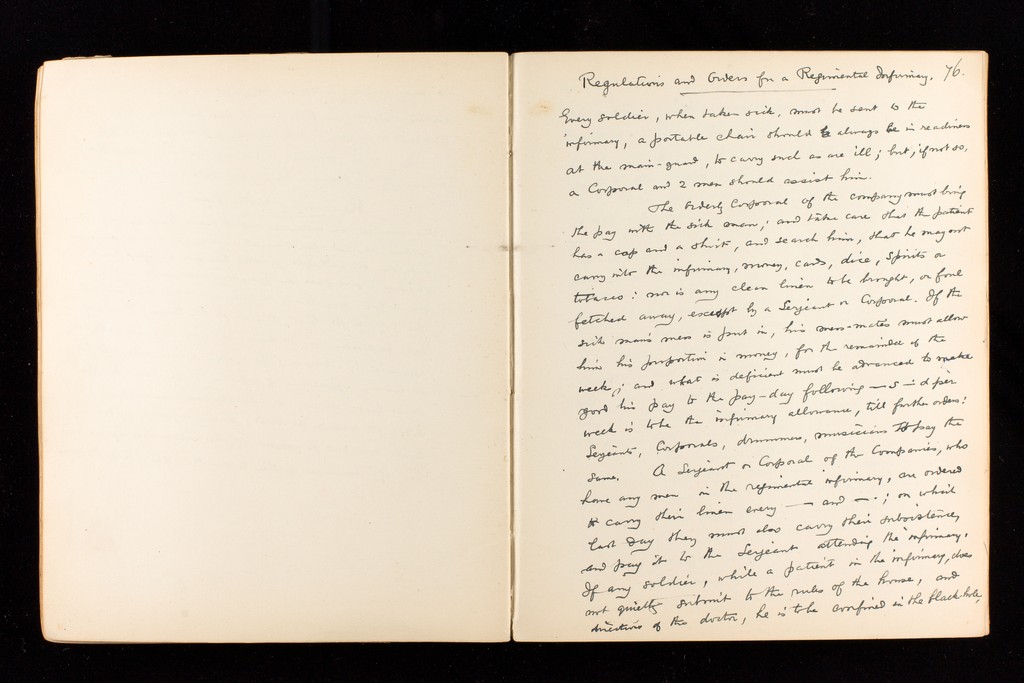 Regulations and Orders for a Regimental Infirmary. 76.
Every soldier, when taken sick, must be sent to the
infirmary, a portable chair should be always be in readiness
at the main-guard, to carry such as are ill; but, if not so,
a Corporal and 2 men should assist him.
The Orderly Corporal of the company must bring
the pay with the sick man; and take care that the patient
has a cap and a shirt, and search him, that he may not
carry into the infirmary, money, cards, dice, spirits or
tobacco: nor is any clean linen to be brought, or foul
fetched away, except by a Serjeant or Corporal. If the
sick man's mess is put in, his mess-mates must allow
him his proportion in money, for the remainder of the
week; and what is deficient must be advanced to make
good his pay to the pay-day following — s — d per
week is to be the infirmary allowance, till further orders:
Serjeants, Corporals, drummers, musicians to pay the
same. A Serjeant or Corporal of the Companies, who
have any men in the regimental infirmary, are ordered
to carry their linen every — and —; on which
last day they must also carry their subsistence,
and pay it to the Serjeant attending the infirmary.
If any soldier, while a patient in the infirmary, does
not quietly submit to the rules of the house, and
directions of the doctor, he is to be confined in the black-hole,